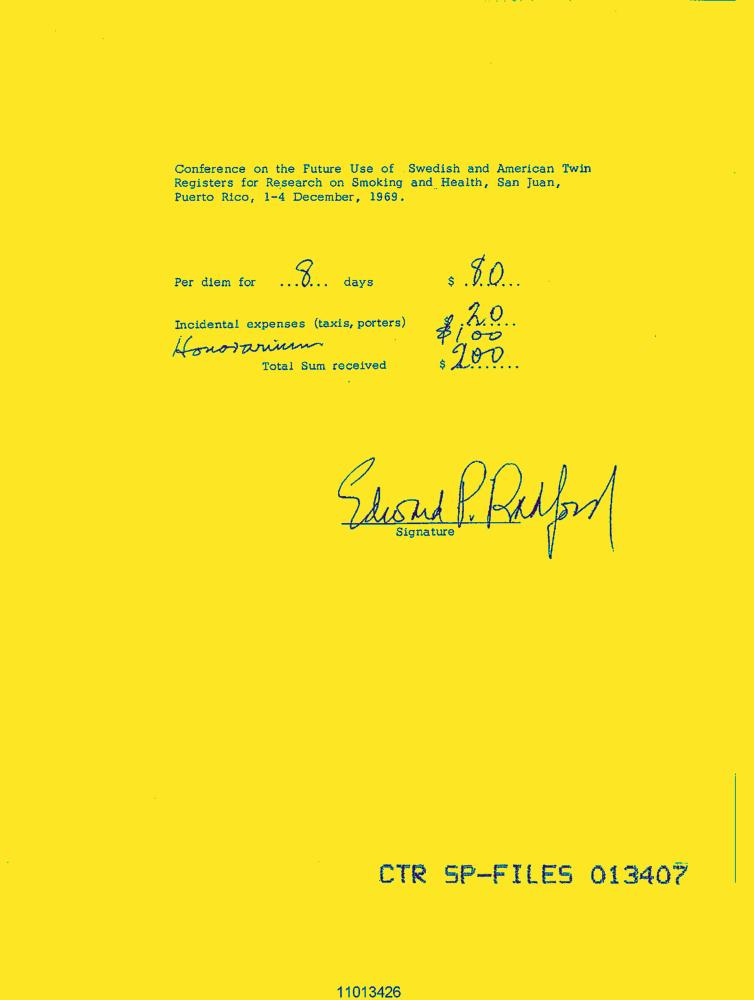 Conference on the Future Use of Swedish and American Twin
Registers for Research on Smoking and Health, San Juan,
Puerto Rico, 1-4 December, 1969.
Per diem for ...8... days $ .80...
Incidental expenses (taxis, porters) $ .20...
Honorarium $100
Total Sum received $ 200.......
Edward P. Radford
Signature
CTR SP-FILES 013407
11013426